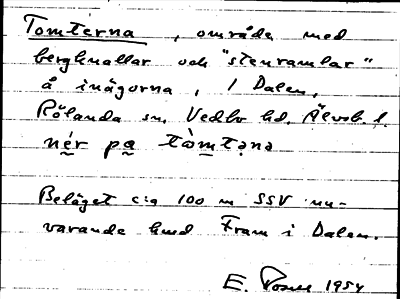 Tomterna, område med
bergknallar och "stenramlar"
å inägorna, 1 Dalen,
Rölanda sn, Vedbo hd, Älvsb. l.
nér pa tòmtəna
Beläget c:a 100 m SSV nu-
varande hmd Fram i Dalen.
E. 1954